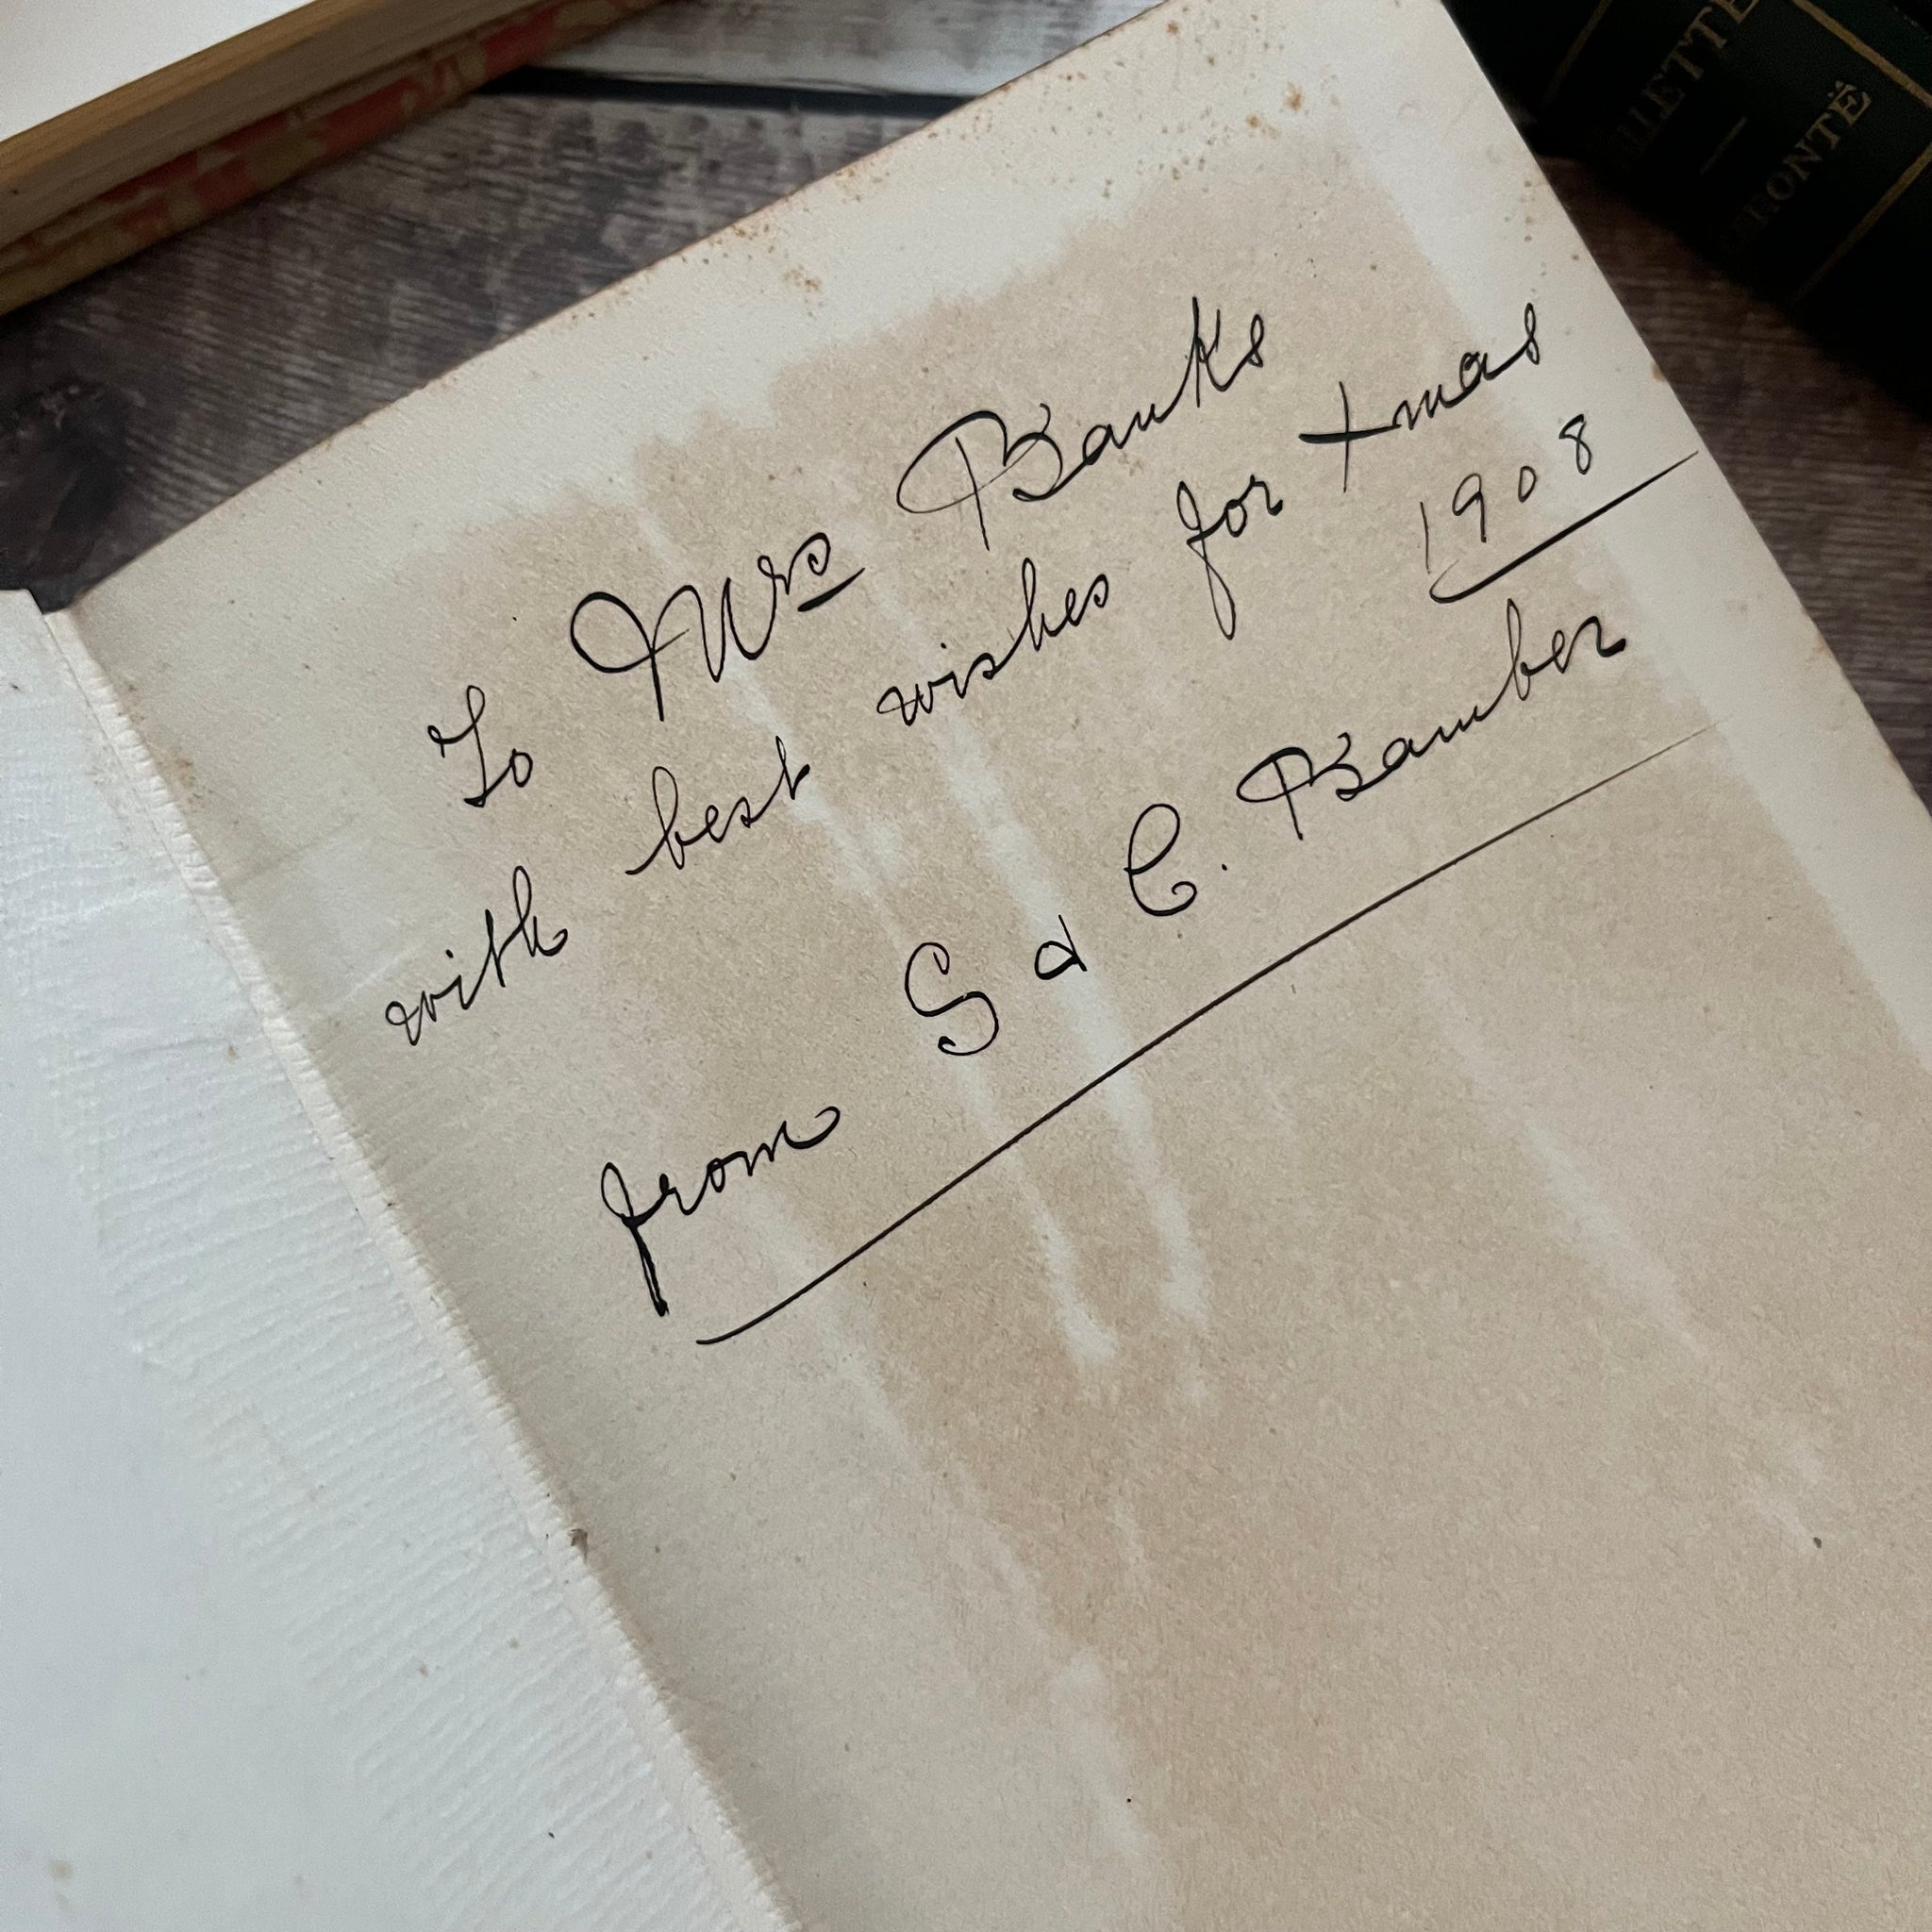 To Mrs Banks
with best wishes for Xmas
1908
from S & C. Bamber
BRONTË